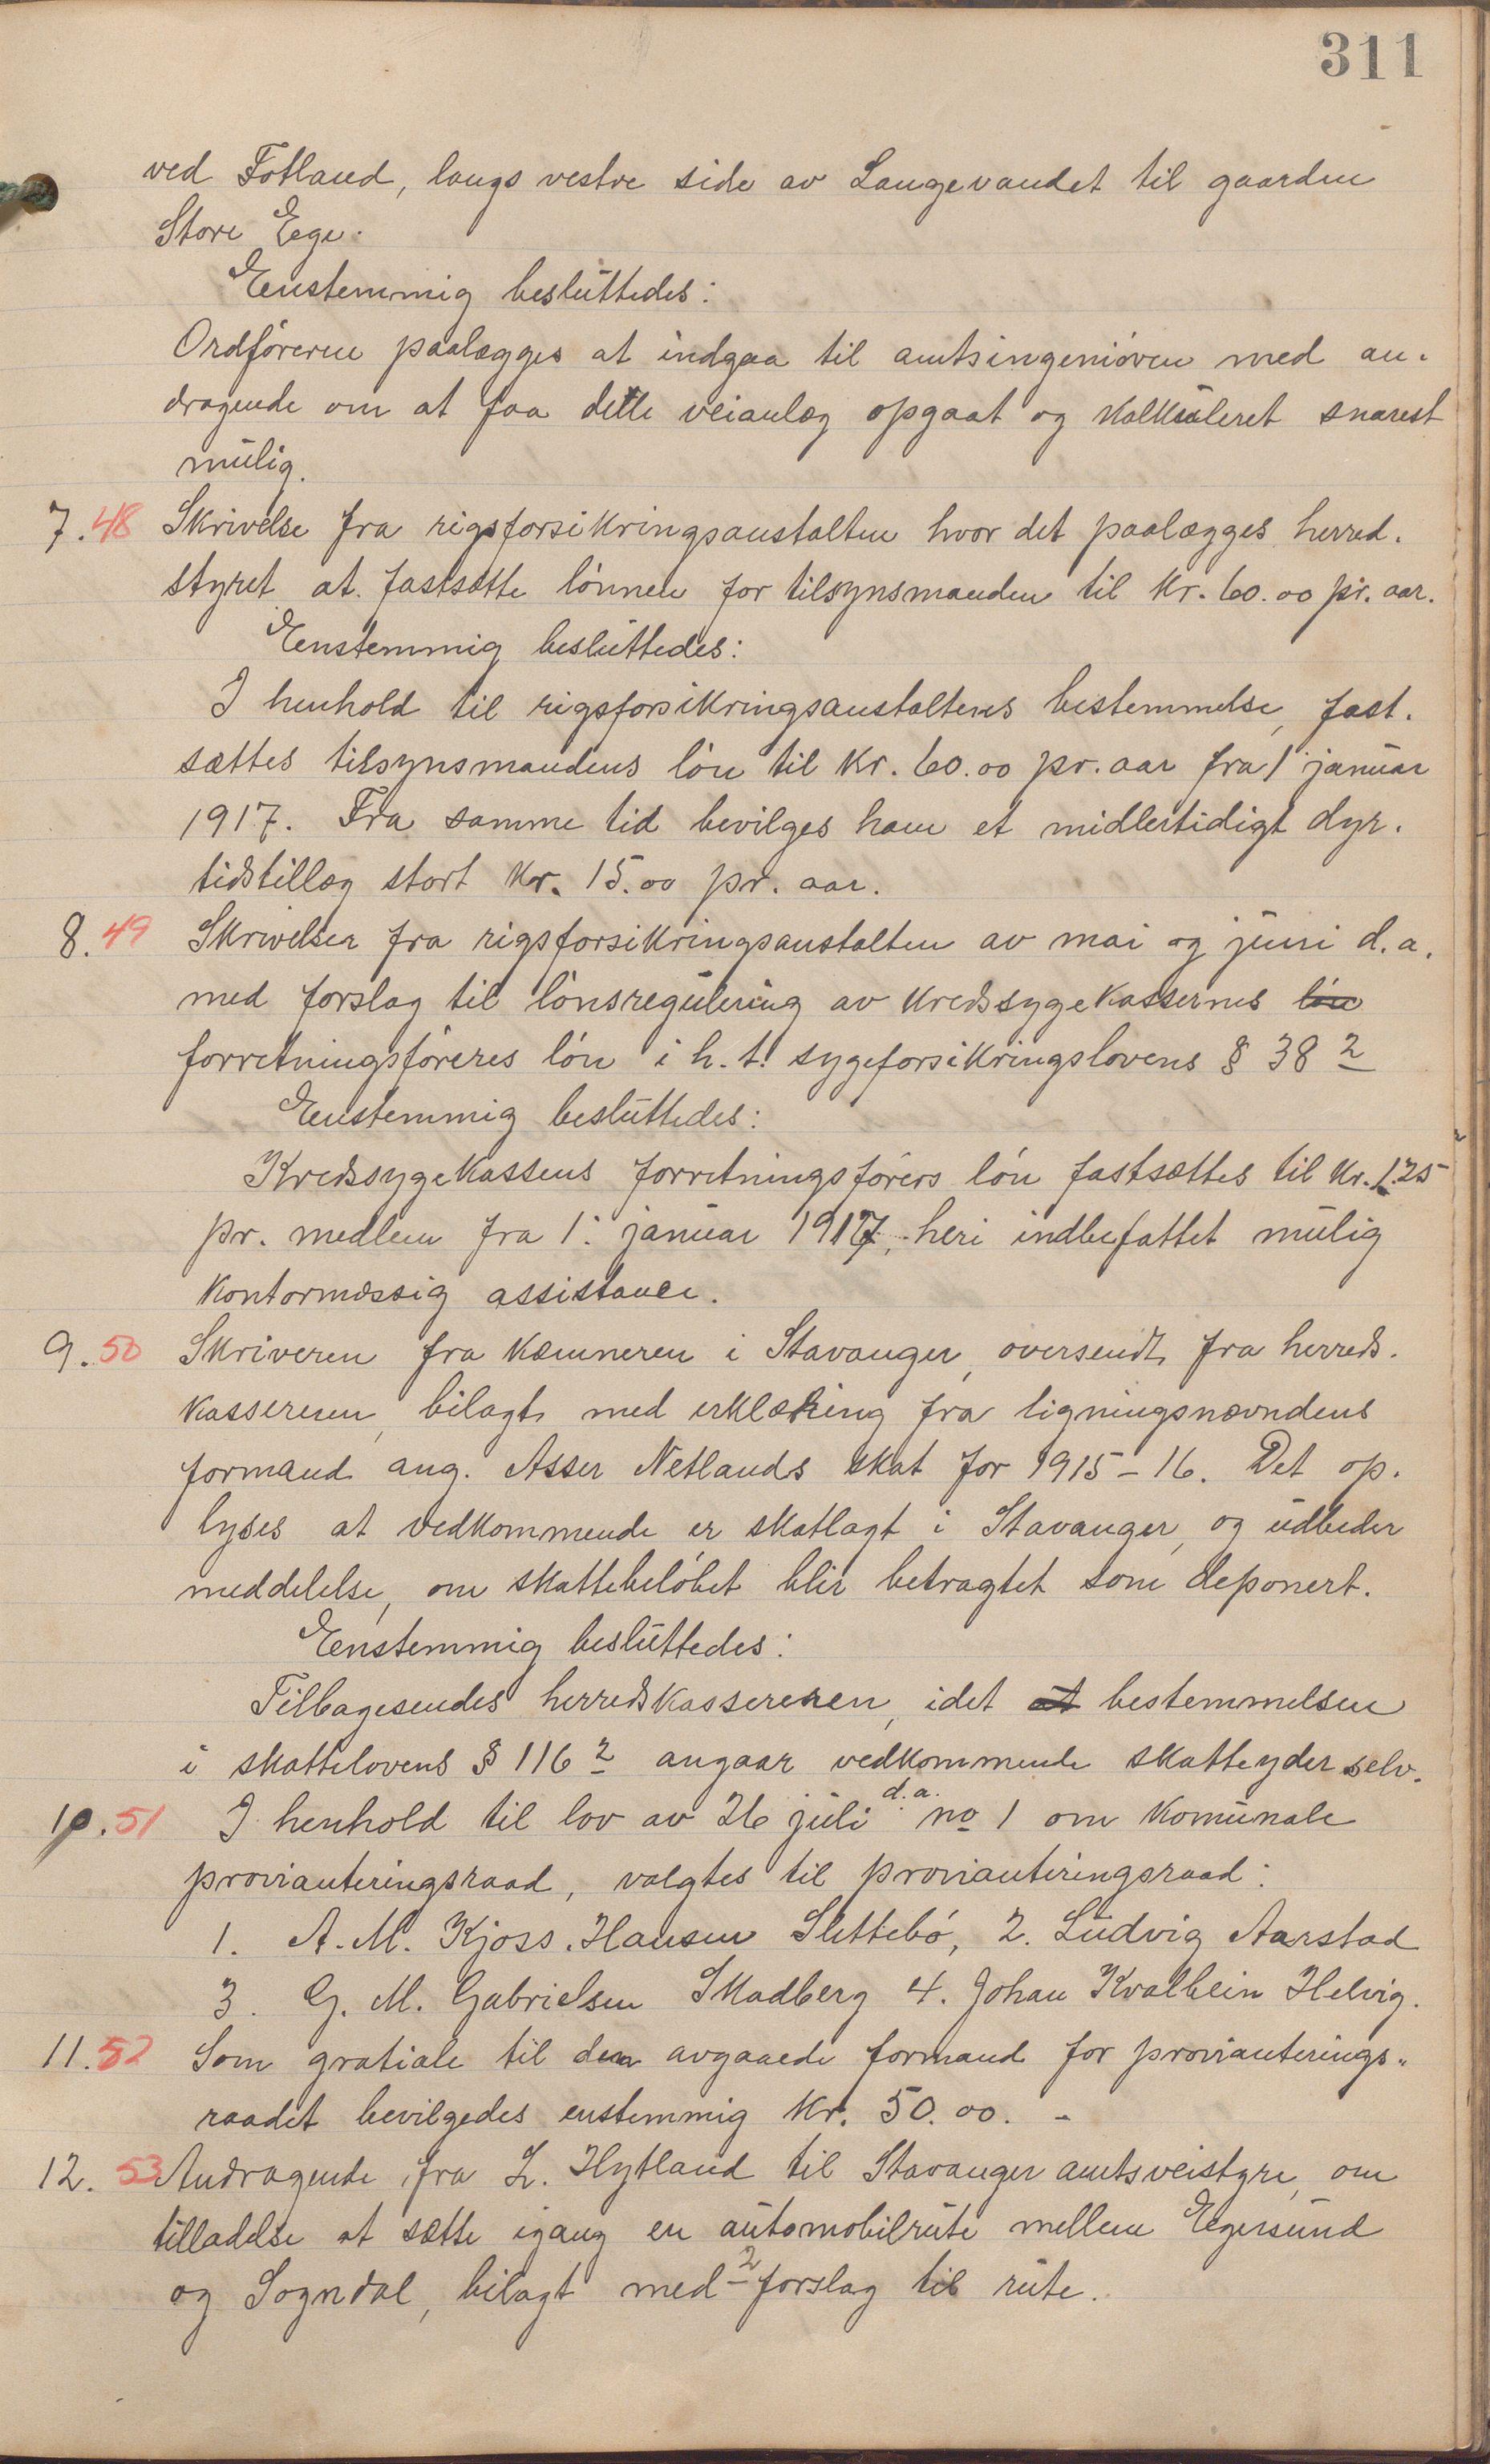 311
ved Fotland, langs vestre side av Langevandet til gaarden
Store Eege.
Eenstemmig besluttedes:
Ordföreren paalægges at indgaa til amtsingeniören med an-
dragende om at faa dette veianlæg opgaat og kalkuleret snarest
mulig.
7. 48 Skrivelse fra rigsforsikringsanstalten hvor det paalægges herred-
styret at fastsætte lönnen for tilsynsmanden til kr. 60.00 pr. aar.
Eenstemmig besluttedes:
I henhold til rigsforsikringsanstaltens bestemmelse, fast-
sættes tilsynsmandens lön til kr. 60.00 pr. aar fra 1 januar
1917. Fra samme tid bevilges ham et midlertidigt dyr-
tidstillæg stort kr. 15.00 pr. aar.
8. 49 Skrivelser fra rigsforsikringsanstalten av mai og juni d.a.
med forslag til lönsregulering av kredssygekassernes lön
forretningsföreres lön i h.t. sygeforsikringslovens § 38 2
Eenstemmig besluttedes:
Kredssygekassens forretningsförers lön fastsættes til kr. 1.25
pr. medlem fra 1. januar 1917, heri indbefattet mulig
kontormæssig assistance.
9. 50 Skriveren fra kæmneren i Stavanger, oversendt fra herreds-
kassereren, bilagt med erklæring fra ligningsnævndens
formand ang. Asser Netlands skat for 1915-16. Det op-
lyses at vedkommende er skatlagt i Stavanger, og udbeder
meddelelse, om skattebelöbet blir betragtet som deponert.
Eenstemmig besluttedes:
Tilbagesendes herredskassereren, idet at bestemmelsen
i skattelovens § 116 2 angaar vedkommende skatteyder selv.
10. 51 I henhold til lov av 26 juli d.a. no 1 om komunale
provianteringsraad, valgtes til provianteringsraad:
1. A. M. Kjoss. Hansen Slettebö, 2. Ludvig Aarstad
3. G. M. Gabrielsen Skadberg 4. Johan Kvalbein Helvig.
11. 52 Som gratiale til den avgaaede formand for provianterings-
raadet bevilgedes enstemmig kr. 50.00. -
12. 53 Andragende fra L. Hytland til Stavanger amtsveistyre, om
tilladelse at sætte igang en automobilrute mellem Egersund
og Sogndal, bilagt med 2 forslag til rute.